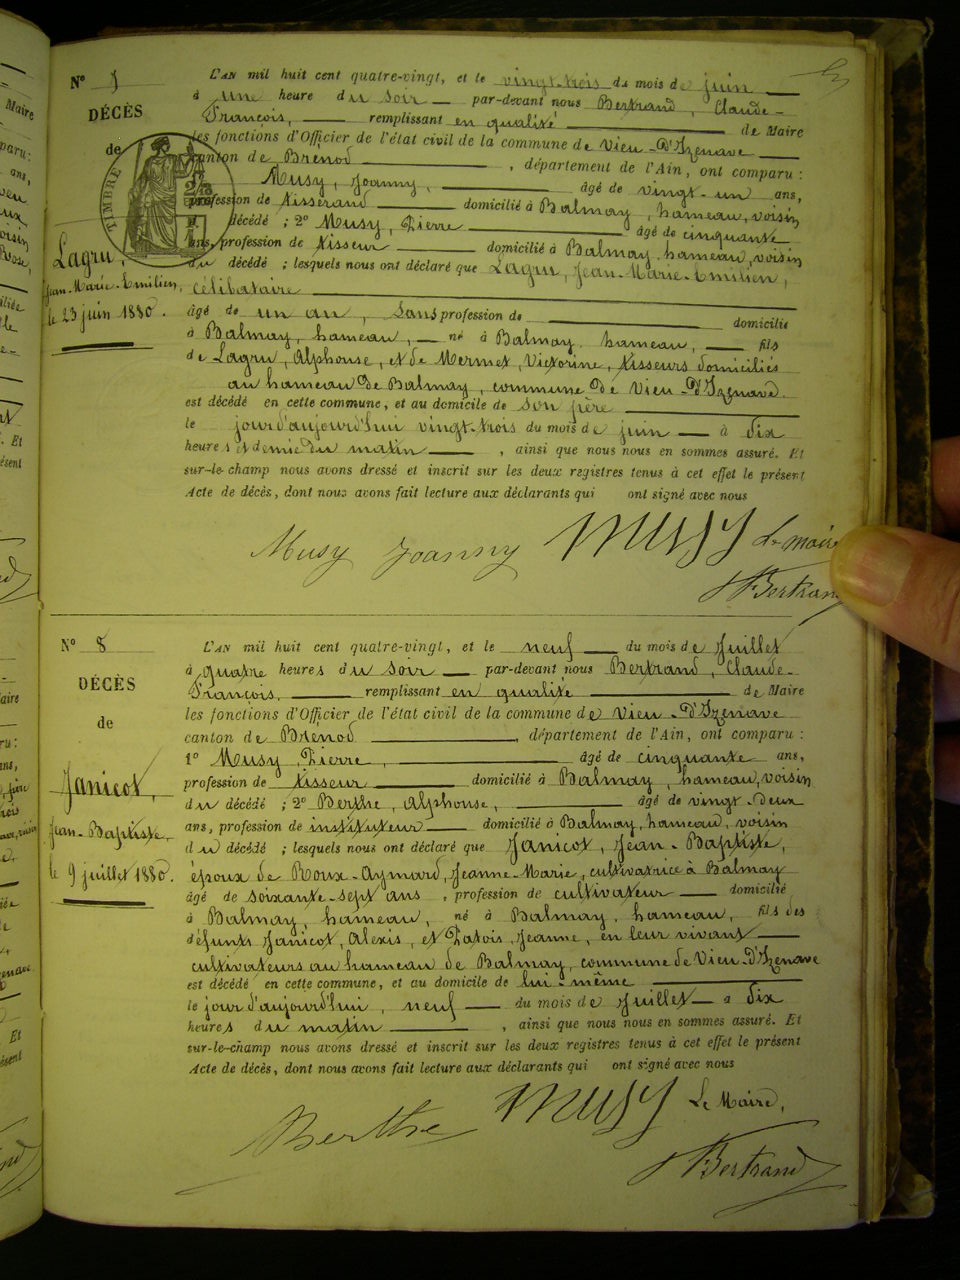 N° 7
DÉCÈS
de
TIMBRE
Lagru,
Jean-Marie-Emilien,
le 23 juin 1880.
L'AN mil huit cent quatre-vingt, et le vingt-trois du mois de juin
à une heure du soir par-devant nous Bertrand, Claude-
François, remplissant en qualité de Maire
les fonctions d'Officier de l'état civil de la commune de Vieu-D'Izenave
canton de Brénod, département de l'Ain, ont comparu :
Musy, Joanny, âgé de vingt-un ans,
profession de tisserand domicilié à Balmay, hameau, voisin
du décédé ; 2° Musy, Pierre âgé de cinquante
ans, profession de tisseur domicilié à Balmay, hameau, voisin
du décédé ; lesquels nous ont déclaré que Lagru, Jean-Marie-Emilien,
célibataire
âgé de un an, sans profession de domicilié
à Balmay, hameau, né à Balmay, hameau, fils
de Lagru, Alphonse, et de Mermet, Victorine, tisseurs domiciliés
au hameau de Balmay, commune de Vieu-D'Izenave
est décédé en cette commune, et au domicile de son père
le jour d'aujourd'hui vingt-trois du mois de juin à dix
heures et demie du matin, ainsi que nous nous en sommes assuré. Et
sur-le-champ nous avons dressé et inscrit sur les deux registres tenus à cet effet le présent
Acte de décès, dont nous avons fait lecture aux déclarants qui ont signé avec nous
Musy Joanny Musy Le maire
Bertrand
N° 8
DÉCÈS
de
Janicot,
Jean-Baptiste,
le 9 juillet 1880.
L'AN mil huit cent quatre-vingt, et le neuf du mois de Juillet
à quatre heures du soir par-devant nous Bertrand, Claude-
François, remplissant en qualité de Maire
les fonctions d'Officier de l'état civil de la commune de Vieu-D'Izenave
canton de Brénod, département de l'Ain, ont comparu :
1° Musy, Pierre, âgé de cinquante ans,
profession de tisseur domicilié à Balmay, hameau, voisin
du décédé ; 2° Berthe, Alphonse, âgé de vingt-deux
ans, profession de instituteur domicilié à Balmay, hameau, voisin
du décédé ; lesquels nous ont déclaré que Janicot, Jean-Baptiste,
époux de Roux-Aymard, Jeanne-Marie, cultivatrice à Balmay
âgé de soixante-sept ans, profession de cultivateur domicilié
à Balmay, hameau, né à Balmay, hameau, fils des
défunts Janicot, Alexis, et Patois, Jeanne, en leur vivant
cultivateurs au hameau de Balmay, commune de Vieu-D'Izenave
est décédé en cette commune, et au domicile de lui-même
le jour d'aujourd'hui, neuf du mois de Juillet à dix
heures du matin, ainsi que nous nous en sommes assuré. Et
sur-le-champ nous avons dressé et inscrit sur les deux registres tenus à cet effet le présent
Acte de décès, dont nous avons fait lecture aux déclarants qui ont signé avec nous
Berthe Musy Le Maire,
Bertrand